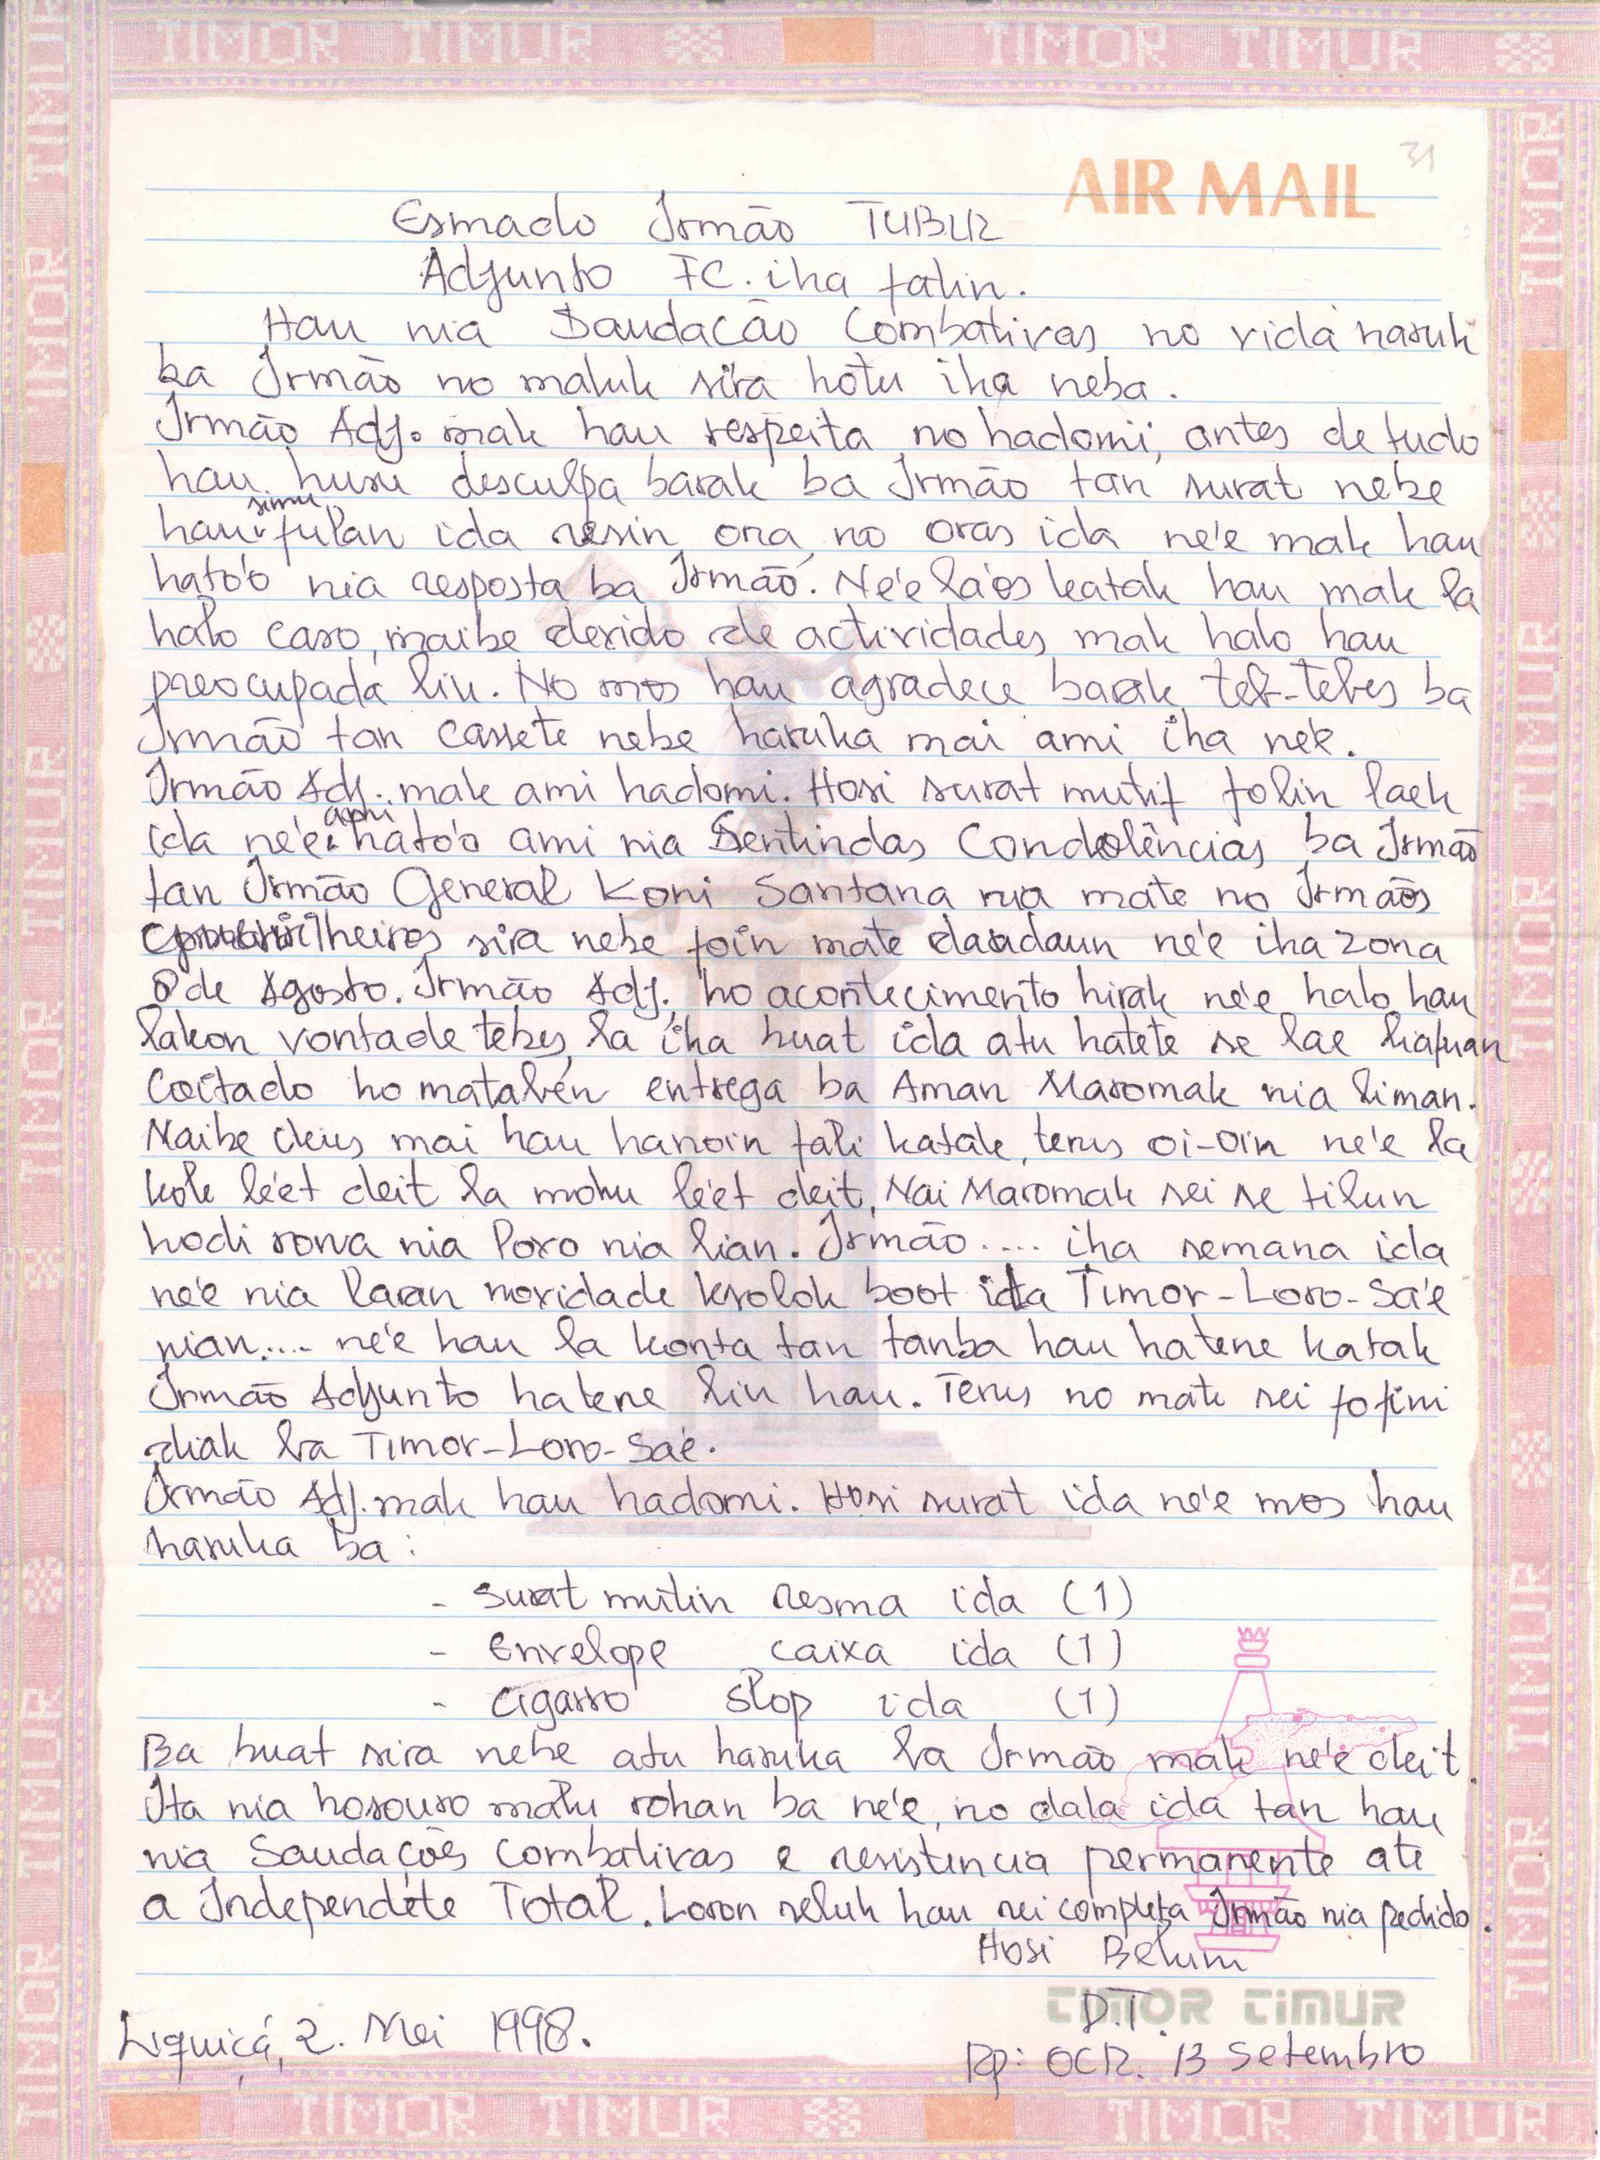 TIMOR TIMUR TIMOR TIMUR
AIR MAIL
31
Esmado Irmão TUBUR
Adjunto FC. iha fatin.
Hau nia Saudacão Combativas no vida naruk
ba Irmão no maluk sira hotu iha neba.
Irmão Adj. mak hau respeita no hadomi, antes de tudo
hau husu desculpa barak ba Irmão tan surat nebe
hau simu fulan ida resin ona, no oras ida ne'e mak hau
hato'o nia resposta ba Irmão. Ne'e la'os katak hau mak la
halo caso, maibe devido de actividades mak halo hau
preocupada liu. No mos hau agradece barak teb-tebes ba
Irmão tan cassete nebe haruka mai ami iha ne'e.
Irmão Adj. mak ami hadomi. Hosi surat mutif folin laek
ida ne'e ami hato'o ami nia Sentindas Condolências ba Irmão
tan Irmão General Koni Santana nia mate no Irmãos
sira nebe foin mate daudaun ne'e iha zona
8 de Agosto. Irmão Adj. ho acontecimento hirak ne'e halo hau
lakon vontade tebes, la iha buat ida atu hatete se lae liafuan
Coitado ho matabén entrega ba Aman Maromak nia liman.
Maibe deus mai hau hanoin fali katak, terus oi-oin ne'e la
kole le'et deit la mohu le'et deit, Nai Maromak sei se tilun
hodi rona nia Povo nia lian. Irmão.... iha semana ida
ne'e nia laran novidade krolok boot ida Timor-Loro-Sa'e
nian.... ne'e hau la konta tan tanba hau hatene katak
Irmão Adjunto hatene liu hau. Terus no mate sei fo fini
diak ba Timor-Loro-Sa'e.
Irmão Adj. mak hau hadomi. Hosi surat ida ne'e mos hau
haruka ba:
- Surat mutin resma ida (1)
- Envelope caixa ida (1)
- Cigarro slop ida (1)
Ba buat sira nebe atu haruka ba Irmão mak ne'e deit.
Ita nia hosouso malu rohan ba ne'e, no dala ida tan hau
nia Saudações Combativas e resistencia permanente ate
a Independéte Total. Loron seluk hau sei completa Irmão nia pedido.
Hosi Belum
D.T.
TIMOR TIMUR
Liquiçá, 2. Mei 1998.
Rp: OCR. 13 Setembro
TIMOR TIMUR TIMOR TIMUR